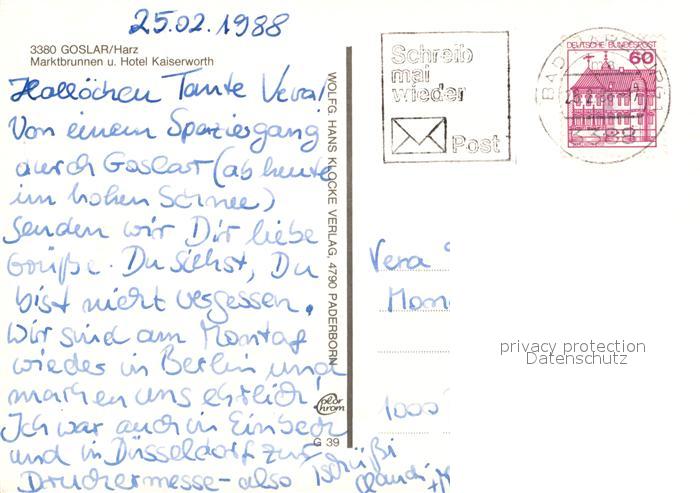 25.02.1988
3380 GOSLAR/Harz
Marktbrunnen u. Hotel Kaiserworth
Hallöchen Tante Vera!
Von einem Spaziergang
durch Goslar (ab heute
im hohen Schnee)
senden wir Dir liebe
Grüße. Du siehst, Du
bist nicht vergessen.
Wir sind am Montag
wieder in Berlin und
machen uns ehrlich,
Ich war auch in Einbeck
und in Düsseldorf zur
Druckermesse - also Tschüßi
Claudi
WOLFG. HANS KLOCKE VERLAG, 4790 PADERBORN
color chrom
G 39
Schreib
mal
wieder
Post
DEUTSCHE BUNDESPOST
60
BAD HARZBURG 1
3388
Vera
1000
privacy protection
Datenschutz